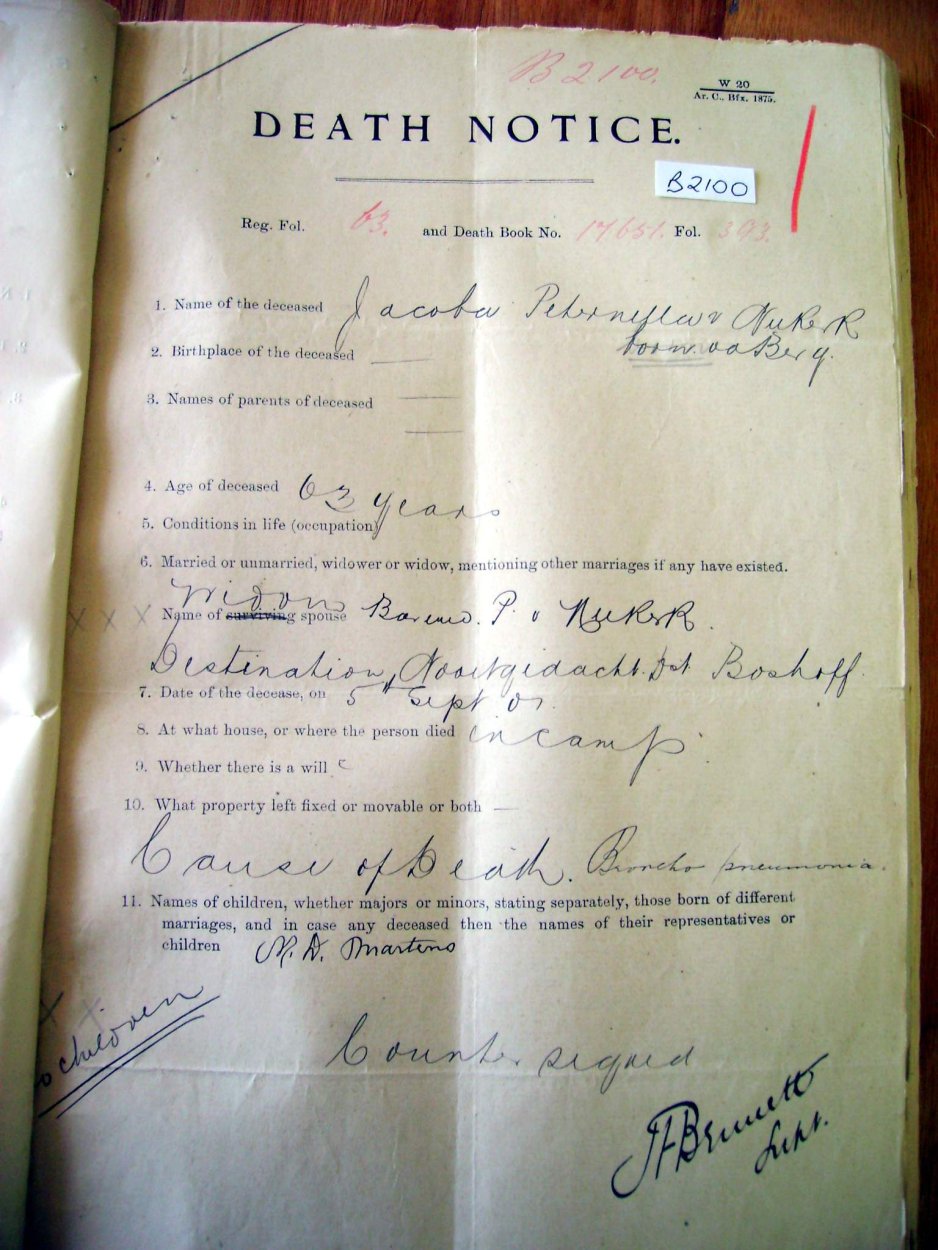 B 2100.
W 20
Ar. C., Bfx. 1875.
DEATH NOTICE.
B2100
Reg. Fol. 63. and Death Book No. 17651. Fol. 393.
1. Name of the deceased Jacoba Peternella v Niekerk
born vd Berg.
2. Birthplace of the deceased —
3. Names of parents of deceased —
—
4. Age of deceased 63 years
5. Conditions in life (occupation)
6. Married or unmarried, widower or widow, mentioning other marriages if any have existed.
Widow
x x x Name of surviving spouse P. v Niekerk.
Destination, Nooitgedacht. Dst Boshoff.
7. Date of the decease, on 5th Sept 01.
8. At what house, or where the person died in camp.
9. Whether there is a will
10. What property left fixed or movable or both —
Cause of Death. Broncho pneumonia.
11. Names of children, whether majors or minors, stating separately, those born of different
marriages, and in case any deceased then the names of their representatives or
children M. D. Martens
x x.
children
Counter signed
Bennett
Supt.